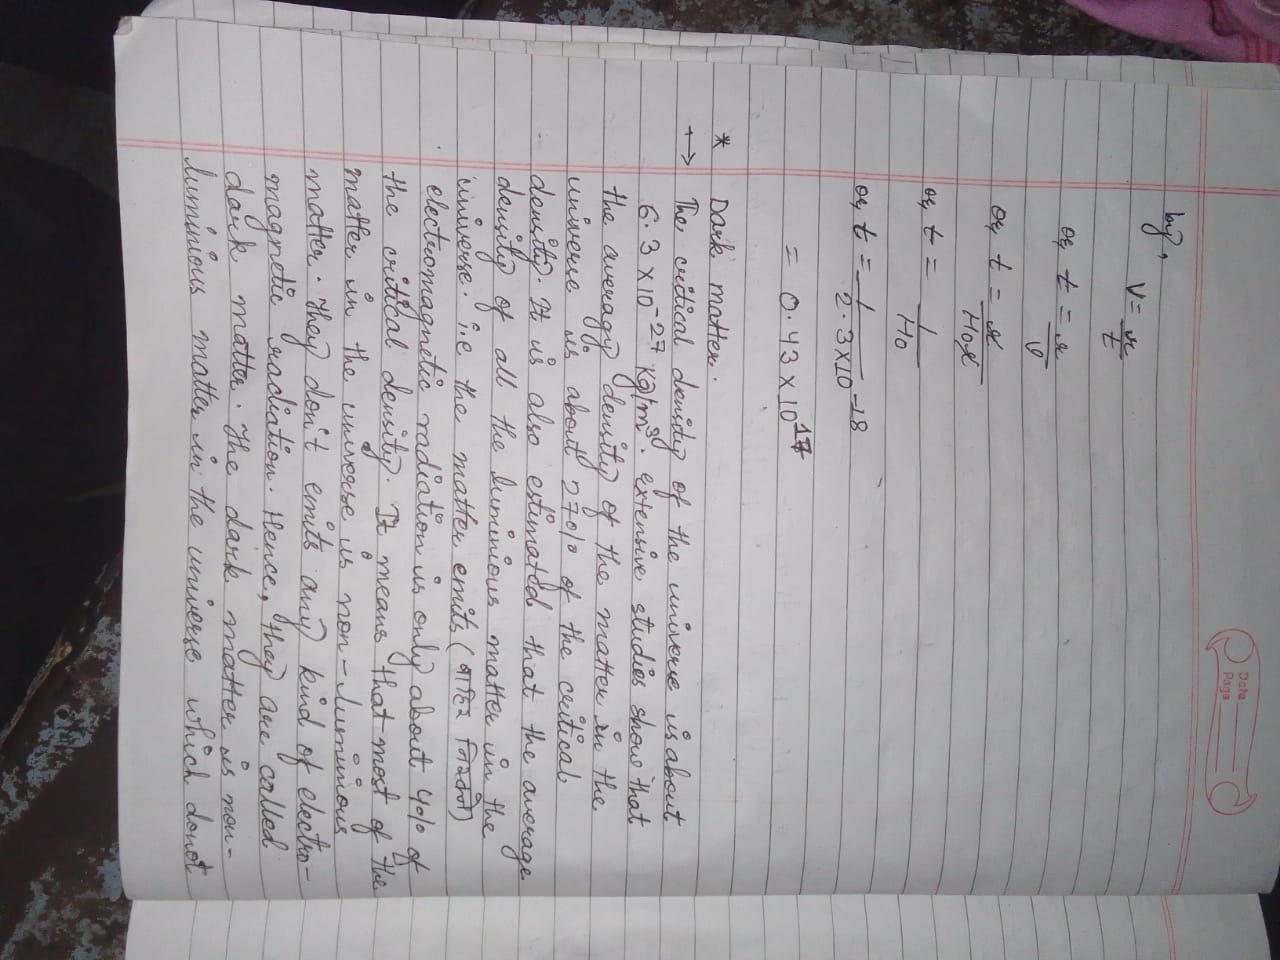 Date
Page
by,
V = r/t
or, t = r/v
or, t = r/H0r
or, t = 1/H0
or, t = 1/2.3×10-18
= 0.43×10^17
* Dark matter.
→ The critical density of the universe is about
6.3×10-27 kg/m3. extensive studies show that
the average density of the matter in the
universe is about 27% of the critical
density. It is also estimated that the average
density of all the luminious matter in the
universe. i.e the matter emits (बाहिर निकाल्ने)
electromagnetic radiation is only about 4% of
the critical density. It means that most of the
matter in the universe is non-luminious
matter. They don't emits any kind of electro-
magnetic radiation. Hence, they are called
dark matter. The dark matter is non-
luminious matter in the universe which donot